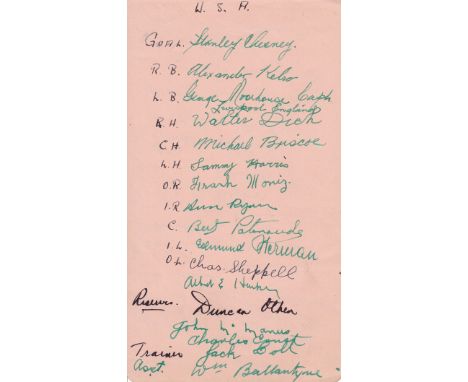 U. S. A.
GOAL. Stanley Chesney.
R. B. Alexander Kelso
L. B. George Moorhouse Capt.
Liverpool England
R. H. Walter Dick
C. H. Michael Briscoe
L. H. Sammy Harris
O. R. Frank Moniz.
I. R. Ryan
C. Bert Patenaude
I. L. Edmund Herman
O. L. Chas. Sheppell
Albert E
Reserves. Duncan Othen
John McManus
Charles
Trainer Jack
Asst. Wm Ballantyne